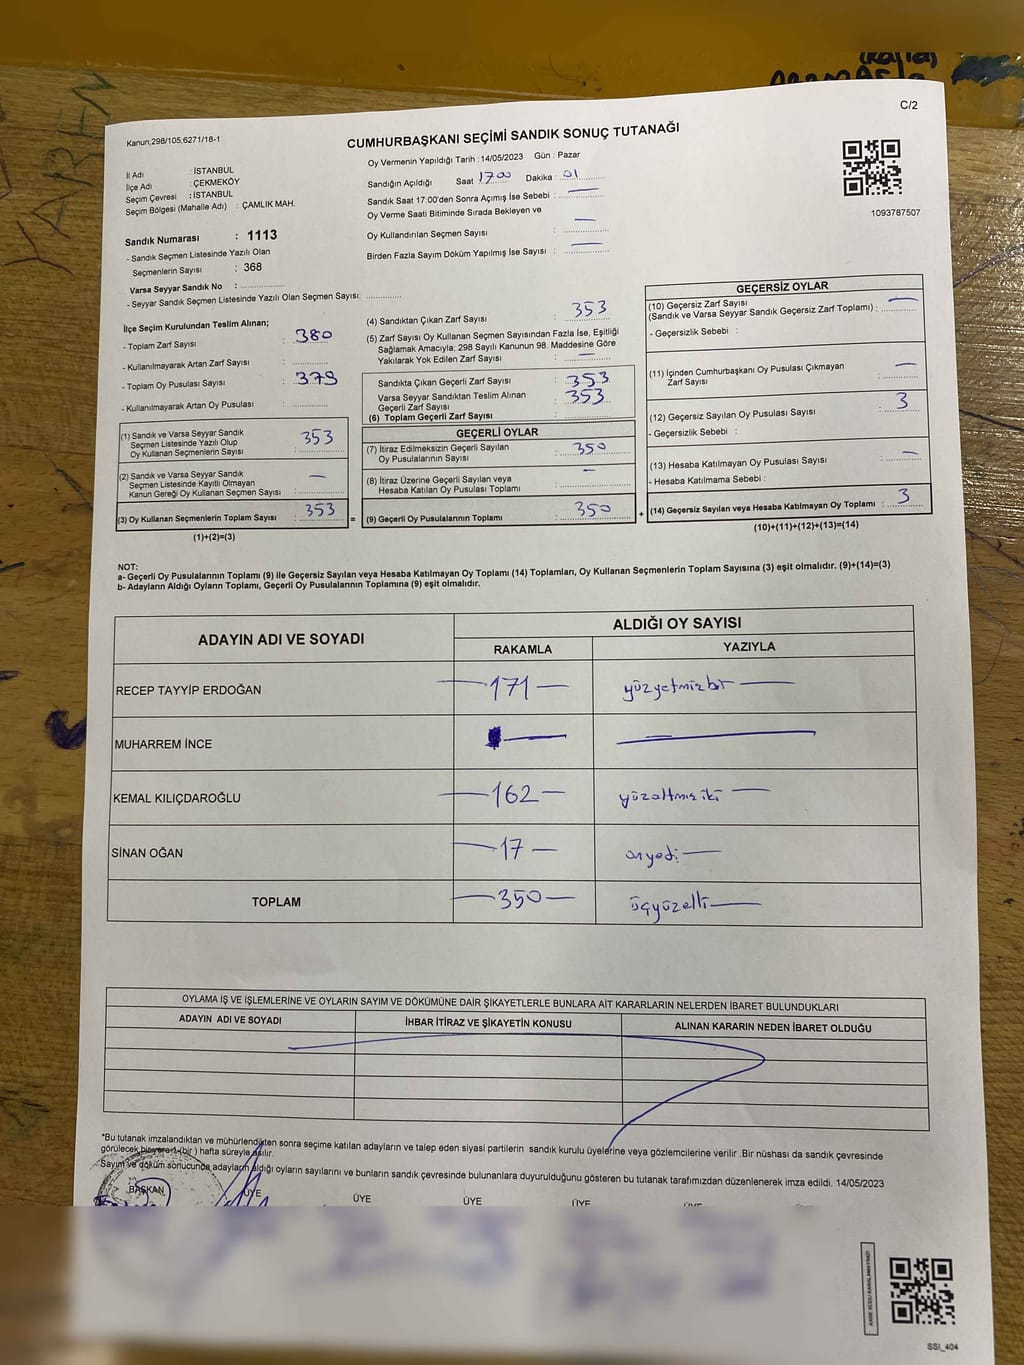 (Kafla)
YAREN
C/2
Kanun;298/105;6271/18-1
CUMHURBAŞKANI SEÇİMİ SANDIK SONUÇ TUTANAĞI
İl Adı : İSTANBUL
İlçe Adı : ÇEKMEKÖY
Seçim Çevresi : İSTANBUL
Seçim Bölgesi (Mahalle Adı) : ÇAMLIK MAH.
Oy Vermenin Yapıldığı Tarih :14/05/2023 Gün : Pazar
Sandığın Açıldığı Saat 17.00 Dakika : 01
Sandık Saat 17:00'den Sonra Açımış İse Sebebi : —
Oy Verme Saati Bitiminde Sırada Bekleyen ve
Oy Kullandırılan Seçmen Sayısı : —
Birden Fazla Sayım Döküm Yapılmış İse Sayısı : —
1093787507
Sandık Numarası : 1113
- Sandık Seçmen Listesinde Yazılı Olan
Seçmenlerin Sayısı : 368
Varsa Seyyar Sandık No :
- Seyyar Sandık Seçmen Listesinde Yazılı Olan Seçmen Sayısı:
İlçe Seçim Kurulundan Teslim Alınan;
- Toplam Zarf Sayısı : 380
- Kullanılmayarak Artan Zarf Sayısı :
- Toplam Oy Pusulası Sayısı : 379
- Kullanılmayarak Artan Oy Pusulası :
(1) Sandık ve Varsa Seyyar Sandık
Seçmen Listesinde Yazılı Olup
Oy Kullanan Seçmenlerin Sayısı : 353
(2) Sandık ve Varsa Seyyar Sandık
Seçmen Listesinde Kayıtlı Olmayan
Kanun Gereği Oy Kullanan Seçmen Sayısı : —
(3) Oy Kullanan Seçmenlerin Toplam Sayısı : 353
(1)+(2)=(3)
=
(4) Sandıktan Çıkan Zarf Sayısı : 353
(5) Zarf Sayısı Oy Kullanan Seçmen Sayısından Fazla İse, Eşitliği
Sağlamak Amacıyla; 298 Sayılı Kanunun 98. Maddesine Göre
Yakılarak Yok Edilen Zarf Sayısı : —
Sandıkta Çıkan Geçerli Zarf Sayısı : 353
Varsa Seyyar Sandıktan Teslim Alınan
Geçerli Zarf Sayısı : 353
(6) Toplam Geçerli Zarf Sayısı :
GEÇERLİ OYLAR
(7) İtiraz Edilmeksizin Geçerli Sayılan
Oy Pusulalarının Sayısı : 350
(8) İtiraz Üzerine Geçerli Sayılan veya
Hesaba Katılan Oy Pusulası Toplamı : —
(9) Geçerli Oy Pusulalarının Toplamı : 350
+
GEÇERSİZ OYLAR
(10) Geçersiz Zarf Sayısı
(Sandık ve Varsa Seyyar Sandık Geçersiz Zarf Toplamı) : —
- Geçersizlik Sebebi :
(11) İçinden Cumhurbaşkanı Oy Pusulası Çıkmayan
Zarf Sayısı : —
(12) Geçersiz Sayılan Oy Pusulası Sayısı : 3
- Geçersizlik Sebebi :
(13) Hesaba Katılmayan Oy Pusulası Sayısı : —
- Hesaba Katılmama Sebebi :
(14) Geçersiz Sayılan veya Hesaba Katılmayan Oy Toplamı : 3
(10)+(11)+(12)+(13)=(14)
NOT:
a- Geçerli Oy Pusulalarının Toplamı (9) ile Geçersiz Sayılan veya Hesaba Katılmayan Oy Toplamı (14) Toplamları, Oy Kullanan Seçmenlerin Toplam Sayısına (3) eşit olmalıdır. (9)+(14)=(3)
b- Adayların Aldığı Oyların Toplamı, Geçerli Oy Pusulalarının Toplamına (9) eşit olmalıdır.
ADAYIN ADI VE SOYADI
ALDIĞI OY SAYISI
RAKAMLA YAZIYLA
RECEP TAYYİP ERDOĞAN —171— yüzyetmişbir —
MUHARREM İNCE — —
KEMAL KILIÇDAROĞLU —162— yüzaltmışiki —
SİNAN OĞAN —17— onyedi —
TOPLAM —350— üçyüzelli —
OYLAMA İŞ VE İŞLEMLERİNE VE OYLARIN SAYIM VE DÖKÜMÜNE DAİR ŞİKAYETLERLE BUNLARA AİT KARARLARIN NELERDEN İBARET BULUNDUKLARI
ADAYIN ADI VE SOYADI İHBAR İTİRAZ VE ŞİKAYETİN KONUSU ALINAN KARARIN NEDEN İBARET OLDUĞU
*Bu tutanak imzalandıktan ve mühürlendikten sonra seçime katılan adayların ve talep eden siyasi partilerin sandık kurulu üyelerine veya gözlemcilerine verilir .Bir nüshası da sandık çevresinde
görülecek bir yere 1 (bir ) hafta süreyle asılır.
Sayım ve döküm sonucunda adayların aldığı oyların sayılarını ve bunların sandık çevresinde bulunanlara duyurulduğunu gösteren bu tutanak tarafımızdan düzenlenerek imza edildi. 14/05/2023
BAŞKAN ÜYE ÜYE ÜYE ÜYE ÜYE ÜYE
SSI_404